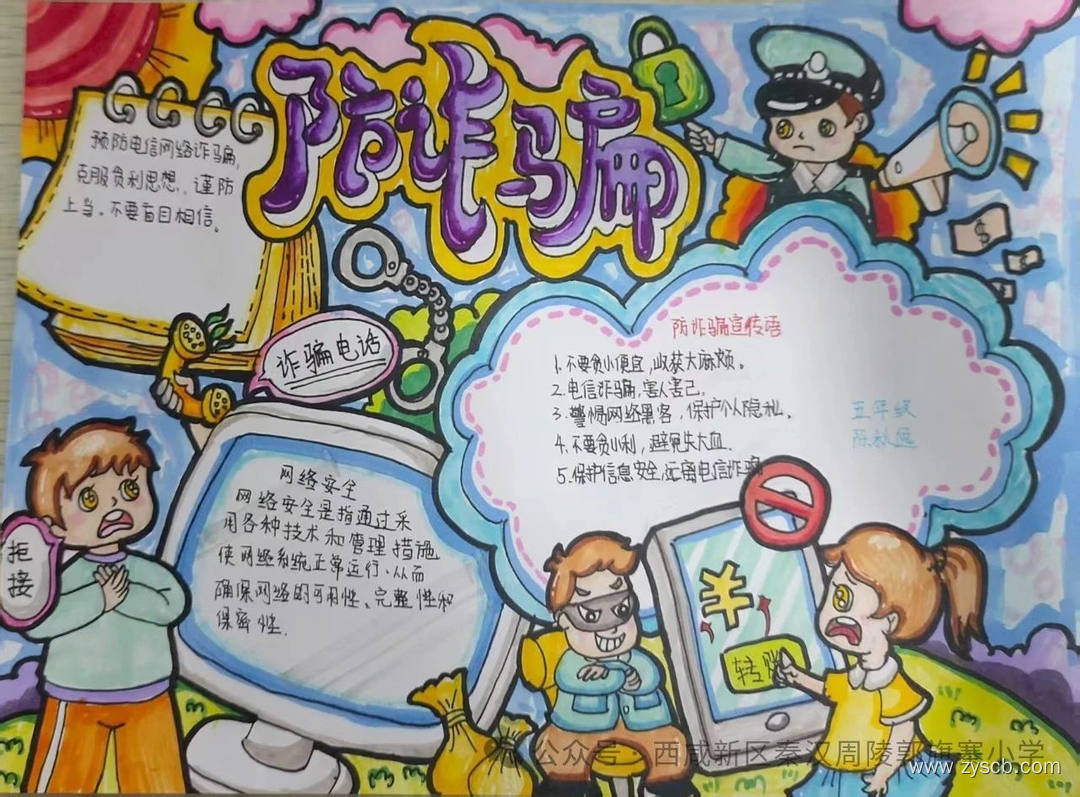 防诈骗
预防电信网络诈骗,
克服贪利思想,谨防
上当。不要盲目相信。
诈骗电话
防诈骗宣传语
1.不要贪小便宜,收获大麻烦。
2.电信诈骗,害人害己,
3.警惕网络黑客,保护个人隐私。
4.不要贪小利,避免失大血.
5.保护信息安全,远离电信诈骗
五年级
网络安全
网络安全是指通过采
用各种技术和管理措施
使网络系统正常运行,从而
确保网络的可用性、完整性和
保密性.
拒
接
¥
转账
公众号·西咸新区秦汉周陵郭旗寨小学
www.zyscb.com